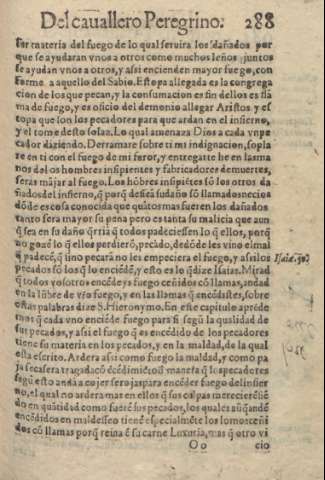 Del cauallero Peregrino. 288
ser materia del fuego de lo qual seruira los dañados por
que se ayudaran vnos a otros como muchos leños juntos
se ayudan vnos a otros, y assi encienden mayor fuego, con
forme a aquello del Sabio. Estopa allegada es la congrega
cion de los que pecan, y la consumacion es fin dellos es fla
ma de fuego, y es oficio del demonio allegar Aristos y es
topa que son los pecadores para que ardan en el infierno,
y el tome desto solaz. Lo qual amenaza Dios a cada vn pe
cador diziendo. Derramare sobre ti mi indignacion, sopla
re en ti con el fuego de mi furor, y entregarte he en las ma
nos de los hombres insipientes y fabricadores de muertes,
seras májar al fuego. Los hóbres insipiétes só los otros da
ñados del infierno, q̃ porq̃ dessea su daño só llamados necios
dóde es cosa conocida que quátos mas fueren los dañados
tanto sera mayor su pena pero es tanta su malicia que aun
q̃ sea en su daño q̃rria q̃ todos padeciessen lo q̃ ellos, porq̃
no gozé lo q̃ ellos perdieró, pecádo, dedóde les vino el mal
q̃ padecé, q̃ si no pecará no les empeciera el fuego, y assi los Isaiæ. 50.
pecados só los q̃ lo enciédé, y esto es lo q̃ dize Isaias. Mirad
q̃ todos vosotros encédeys fuego ceñidos có llamas, andad
en la lúbre de vr̃o fuego, y en las llamas q̃ encédistes, sobre
estas palabras dize S. Hieronymo. En este capitulo apréde
mos q̃ cada vno enciéde fuego para si segũ la qualidad de
sus pecados, y assi el fuego q̃ es encédido de los pecadores
tiene su materia en los pecados, y en la maldad, de la qual
esta escrito. Ardera assi como fuego la maldad, y como pa
ja seca sera tragada có
segũ esto anda a
no, el qual no ardera mas en ellos q̃ sus culpas mereciere
do en quátidad como fueré sus pecados, los quales aũq̃ andé
encédidos en mal desseo tiené especialméte los
dos có llamas porq̃ reina é su carne Luxuria, mas q̃ otro vi
O o cio